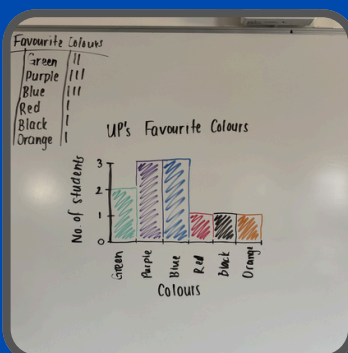 Favourite Colours
Green II
Purple III
Blue III
Red I
Black I
Orange I
UP's Favourite Colours
No. of students
3
2
1
0
Green
Purple
Blue
Red
Black
Orange
Colours